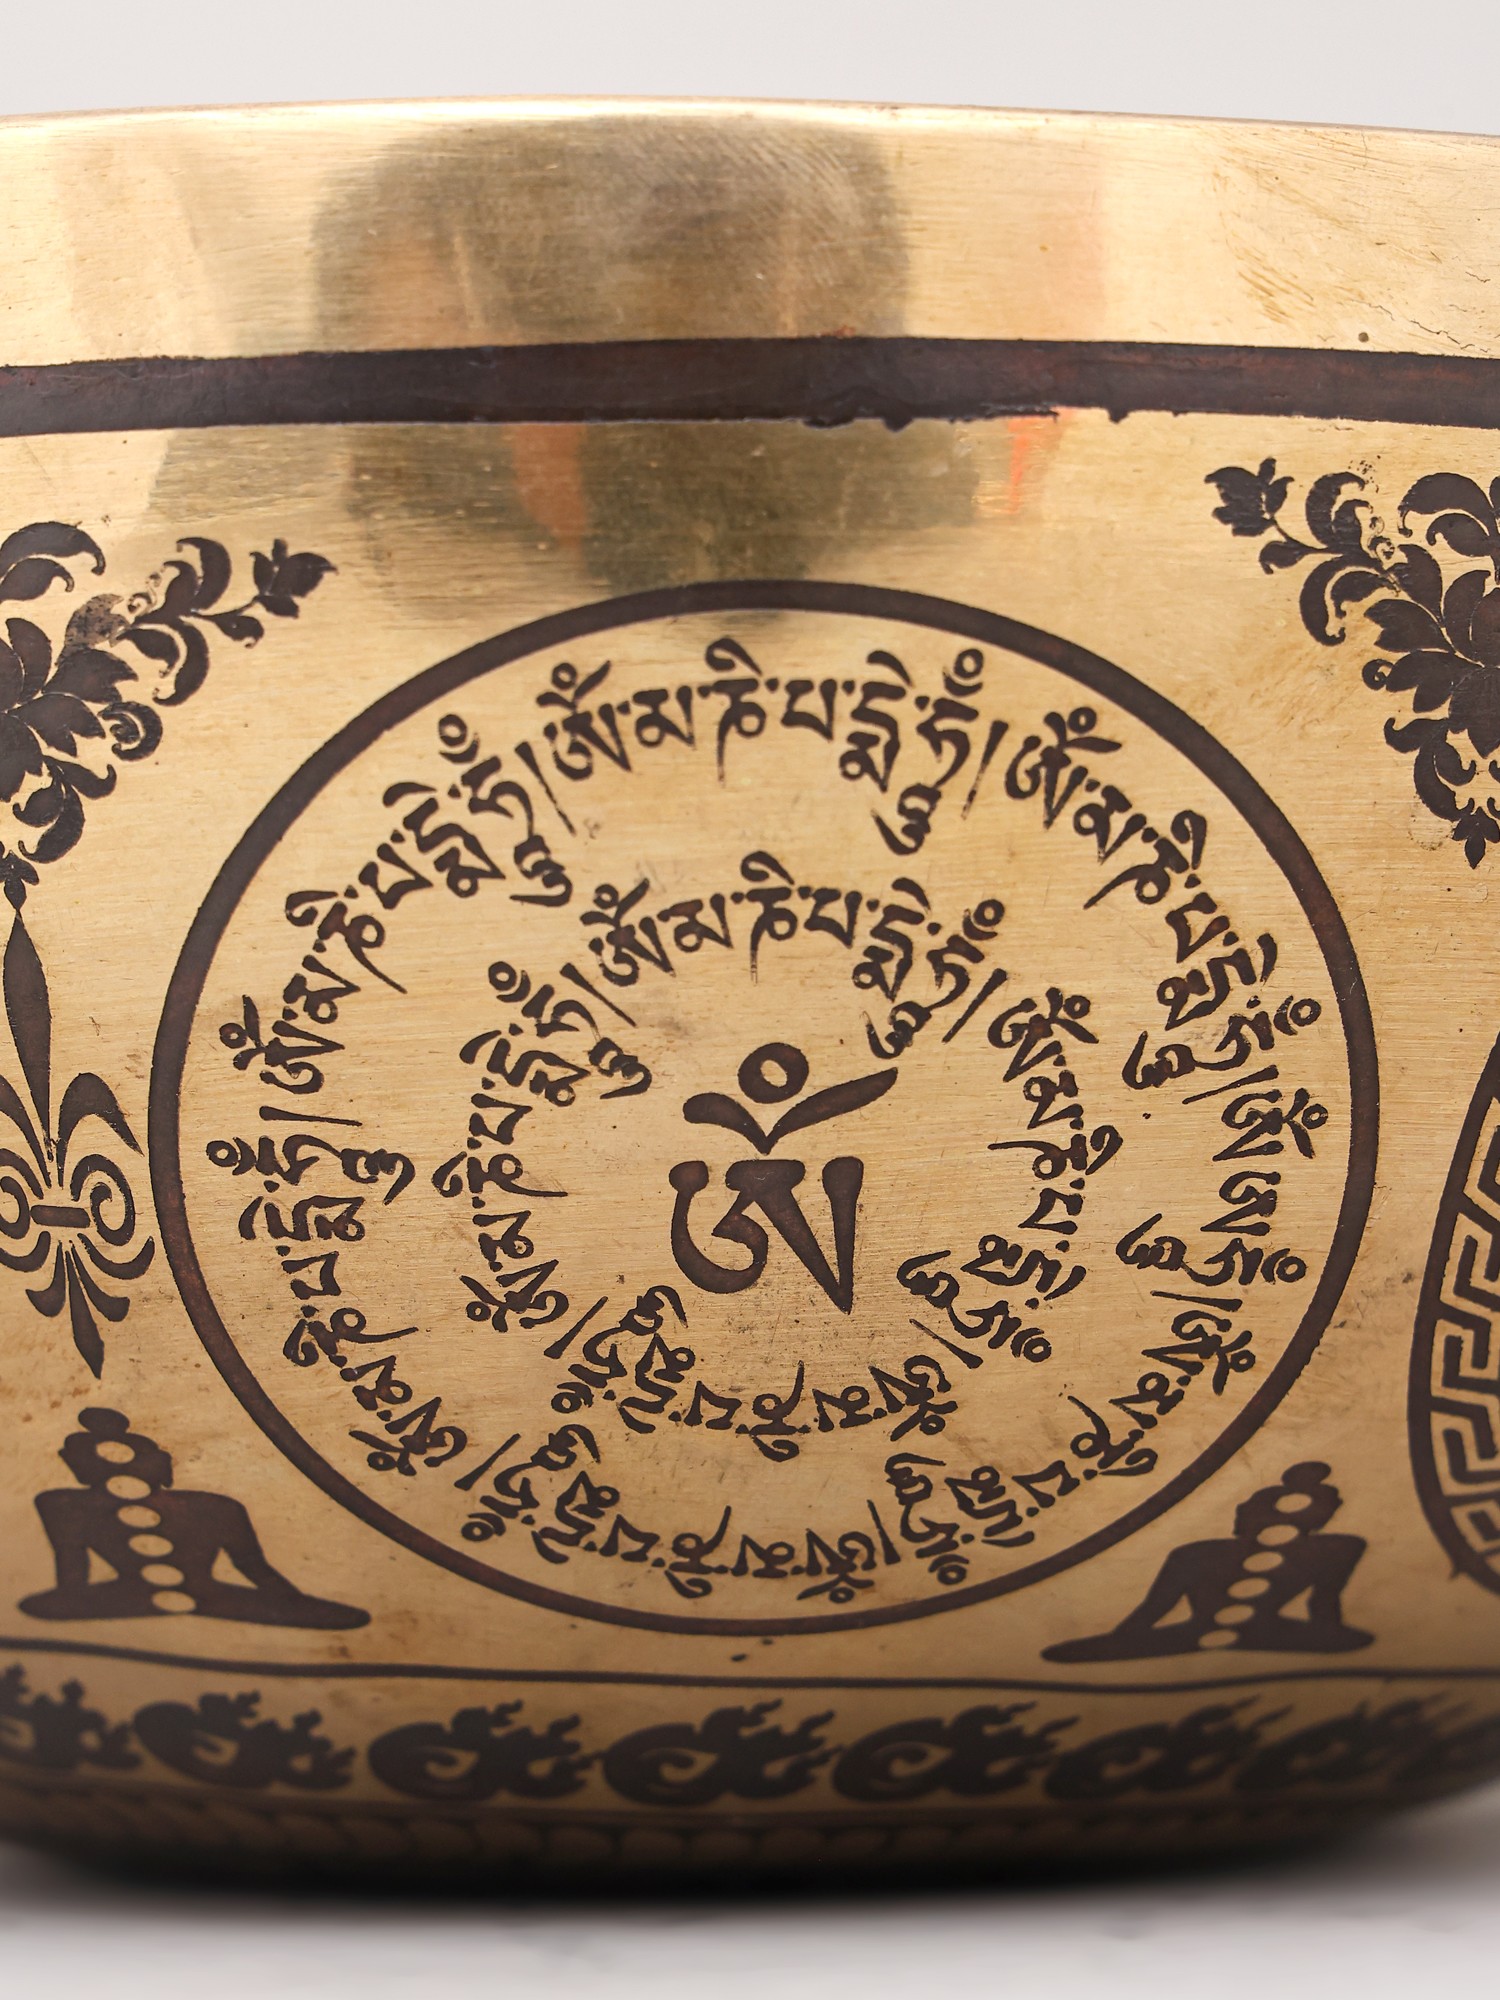 ཨོཾ་མ་ཎི་པ་དྨེ་ཧཱུྃ།ཨོཾ་མ་ཎི་པ་དྨེ་ཧཱུྃ།ཨོཾ་ཨ་ཧཱུྃ།ཨོཾ་མ་ཎི་པ་དྨེ་ཧཱུྃ།ཨོཾ་མ་ཎི་པ་དྨེ་ཧཱུྃ།ཨོཾ་མ་ཎི་པ་དྨེ་ཧཱུྃ།ཨོཾ་མ་ཎི་པ་དྨེ་ཧཱུྃ།
ཨོཾ་མ་ཎི་པ་དྨེ་ཧཱུྃ།ཨོཾ་མ་ཎི་པ་དྨེ་ཧཱུྃ།ཨོཾ་མ་ཎི་པ་དྨེ་ཧཱུྃ།ཨོཾ་མ་ཎི་པ་དྨེ་ཧཱུྃ།
ཨོཾ